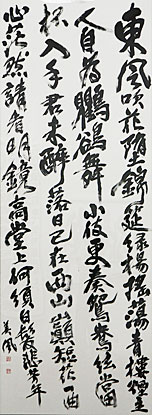 東風吹花墮錦筵綠楊搖蕩青樓煙主
人自為鸜鵒舞小伎更奏鴛鴦絃當
杯入手君未醉落日已在西山巔短歌一曲
心茫然請看明鏡高堂上何須白髮悲芳年